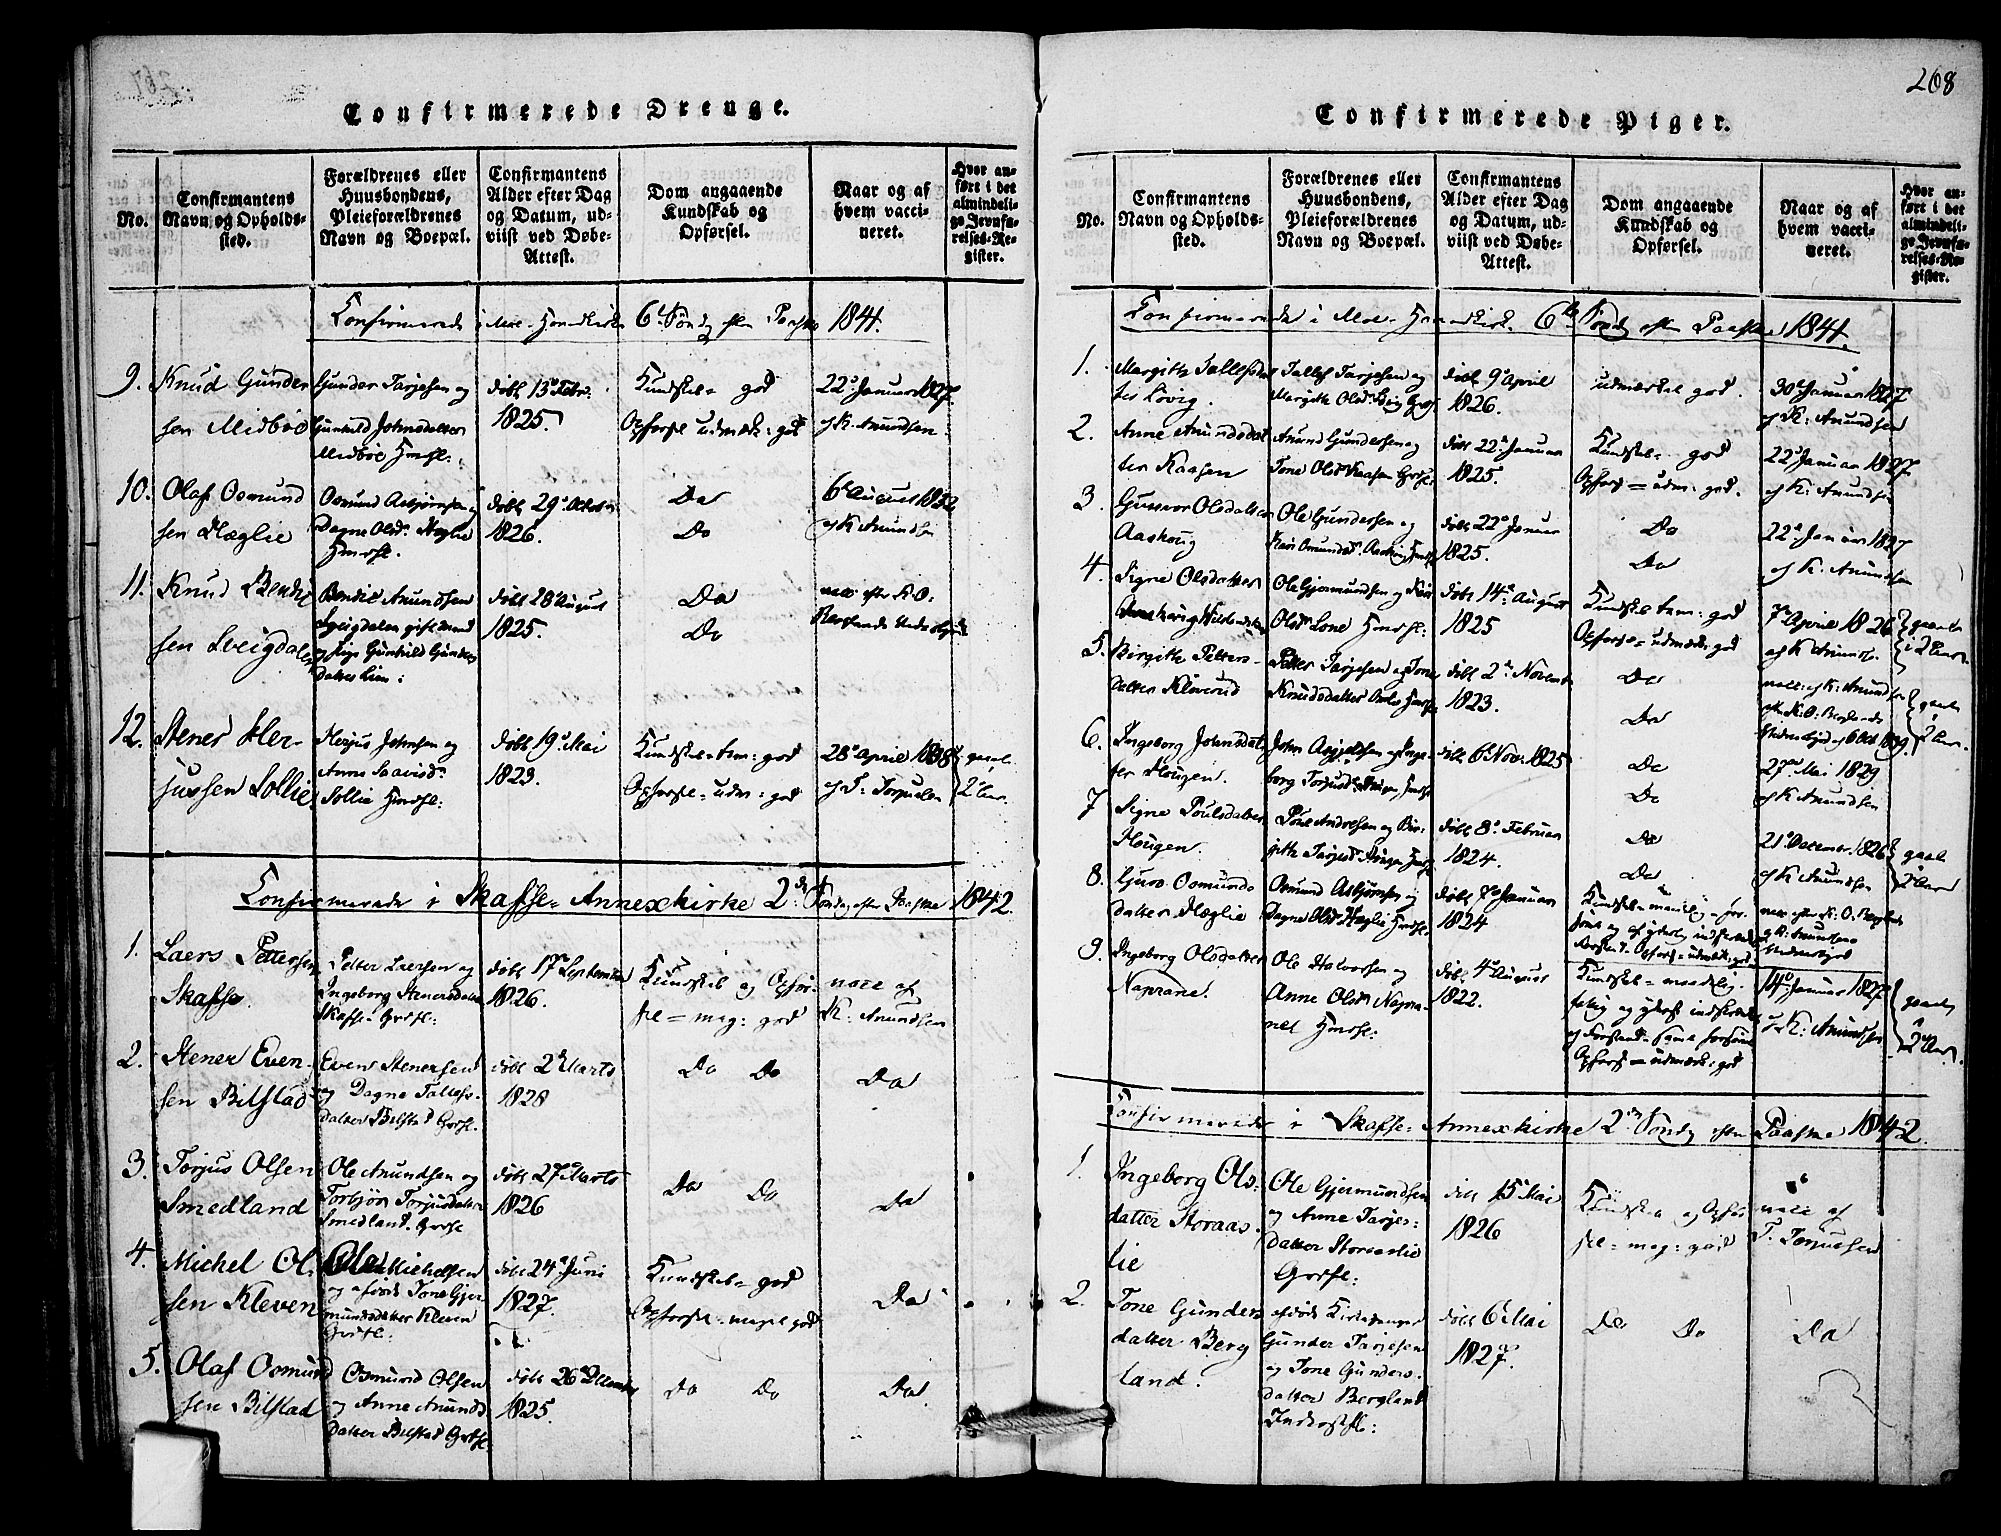 Confirmerede Drenge.
No.
Confirmantens
Navn og Opholds-
sted.
Forældrenes eller
Huusbondens,
Pleieforældrenes
Navn og Boepæl.
Confirmantens
Alder efter Dag
og Datum, ud-
viist ved Døbe-
Attest.
Dom angaaende
Kundskab og
Opførsel.
Naar og af
hvem vacci-
neret.
Hvor an-
ført i det
almindeli-
ge Jevnfø-
relses-Re-
gister.
Confirmerede i Moe Hovedkirke 6te Søndag efter Paaske 1841.
9. Knud Gunder
sen Midbøe
Gunder Tarjesen og
Gunhild Johnsdatter
Midbøe
døbt 13de Febr:
1825.
Kundskab = god
Opførsel udmærk: god
22de Januar 1827.
af K. Anundsen.
10. Olaf Osmund
sen Hæglie
Osmund Asbjørnsen og
Dagne Olsdr Hæglie
døbt 29de October
1826.
Do
Do
6te August 1832
af K. Anundsen
11. Knud Bendix
sen Sveigdalen
Bendix Anundsen
Sveigdalen gift med
Gunhild Gunders
datter
døbt 28de August
1825.
Do
Do
12. Stener Her-
jussen Sollie
Herjus Johnsen og
Anne
Sollie
døbt 19de Mai
1823.
Kundskab = tem: god
Opførsel = udm: god
28de April 1838
af T. Torjusen
gaaet
2 Aar.
Confirmerede i Skafse Annexkirke 2den Søndag efter Paaske 1842.
1. Laers Pettersen
Skafse.
Petter Laersen og
Ingeborg Stenersdatter
Skafse
døbt 17de September
1826.
Kundskab og Opfør-
sel = meg: god
vacc af
K: Anundsen
2. Stener Even-
sen Bilstad
Even Stenersen
og Dagne Tallefs-
datter Bilstad
døbt 2den Marts
1828
Do Do
Do
3. Torjus Olsen
Smedland
Ole Anundsen og
Torbjør Torjusdatter
Smedland
døbt 27de Marts
1826
Do Do
Do
4. Michel Ol-
sen Kleven
Ole Michelsen
og afdøde Tone Gjer
mundsdatter Kleven
døbt 24de Juni
1827.
Kundskab = god
Opførsel = meget god
Do
5. Olaf Osmund
sen Bilstad
Osmund Olsen
og Anne Anunds
datter Bilstad
døbt 26de December
1825.
Do Do
Do.
268
Confirmerede Piger.
No.
Confirmantens
Navn og Opholds-
sted.
Forældrenes eller
Huusbondens,
Pleieforældrenes
Navn og Boepæl.
Confirmantens
Alder efter Dag
og Datum, ud-
viist ved Døbe-
Attest.
Dom angaaende
Kundskab og
Opførsel.
Naar og af
hvem vacci-
neret.
Hvor an-
ført i det
almindeli-
ge Jevnfø-
relses-Re-
gister.
Confirmerede i Moe Hovedkirke 6te Søndag efter Paaske 1841.
1. Margith Tallefsdat
ter
Tallef Tarjesen og
Margith Olsdr
døbt 9de April
1826.
udmærket god.
30te Januar 1827
af K: Anundsen
2. Anne Anundsdat
ter Kaasen
Anund Gundersen og
Tone Olsdr Kaasen
døbt 22de Januar
1825.
Kundskab = god
Opførsel = udm: god.
22de Januar 1827.
af K: Anundsen
3. Gunvor Olsdatter
Aashoug
Ole Gundersen og
Kari Osmundsdr Aashoug
døbt 22de Januar
1825.
Do
Do
22de Januar 1827
af K. Anundsen
4. Signe Olsdatter
Ole Gjermundsen og
Olsdr Lone
døbt 14de August
1825
Kundskab tem: god
Opførsel = udmærk: god
7de April 1826
af K Anundsen
gaaet
i 2 Aar.
5. Birgith Petters-
datter Kloverud
Petter Tarjesen og Tone
Knudsdatter
døbt 2den November
1823.
Do
Do
vacc: af K: Anundsen
gaaet
2 Aar.
6. Ingeborg Johnsdat-
ter Hougen.
John
borg Torjusdr Hougen
døbt 6te Nov: 1825
Do
Do
27de Mai 1829
af K Anundsen
7 Signe Poulsdatter
Hougen.
Poul Andresen og Bir-
gith Tarjesdr Hougen
døbt 8de Februar
1824.
Do
Do
21de December 1826
af K: Anundsen
gaaet
2 Aar
8. Gjuro Osmunds
datter Hæglie
Osmund Asbjørnsen og
Dagne Olsdr Hæglie
døbt 7de Januar
1824
9. Ingeborg Olsdatter
Naprane.
Ole Halvorsen og
Anne Olsdr Napra-
net
døbt 4de August
1822.
Kundskab = maadelig.
Opførsel = udmærk: god
14de Januar 1827
af K: Anundsen
gaaet
2 Aar.
Confirmerede i Skafse Annexkirke 2den Søndag efter Paaske 1842.
1. Ingeborg Ols-
datter Storaas-
lie
Ole Gjermundsen
og Anne Tarjes-
datter Storaaslie
døbt 15de Mai
1826
Kundskab og Opfør
sel = meg: god
vacc af
T. Torjusen
2. Tone Gunders
datter Berg
land.
afdøde Kirkesanger
Gunder Tarjesen
og Tone Gunders-
datter Bergland
døbt 6te Mai
1827.
Do Do
Do